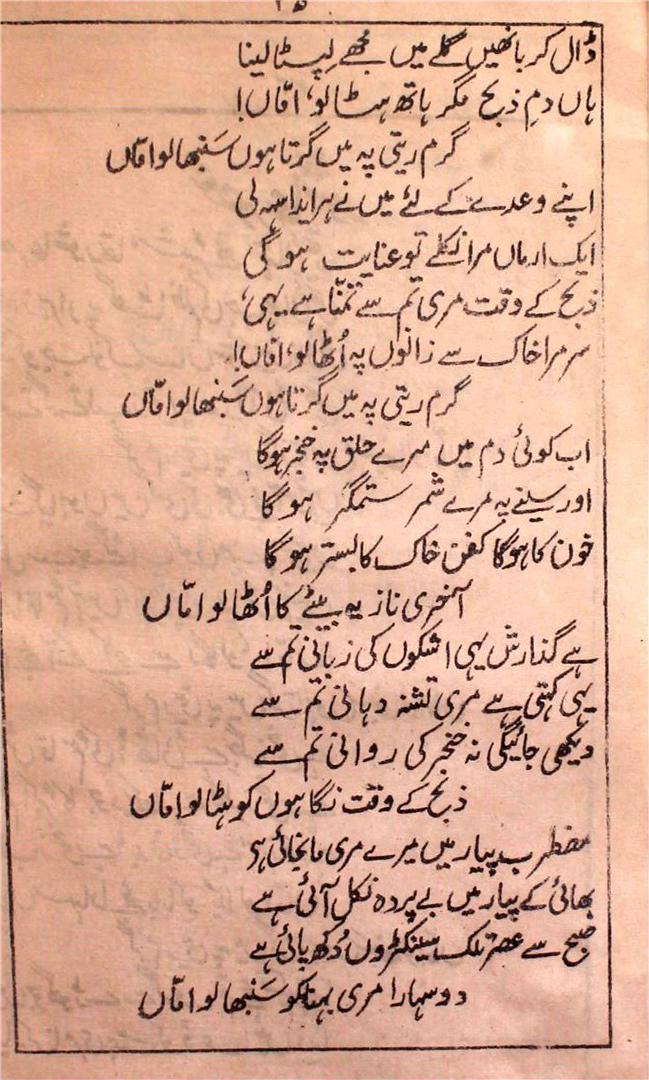 ڈال کر بانھیں گلے میں مجھے لپٹا لینا
ہاں دمِ ذبح مگر ہاتھ ہٹا لو، امّاں!
گرم ریتی پہ میں گرتا ہوں سَنبھالو امّاں
اپنے وعدے کے لئے میں نے ہر ایذا سہہ لی
ایک ارماں مرا نکلے تو عنایت ہوگی
ذبح کے وقت مری تم سے تمنّا ہے یہی،
سر مرا خاک سے زانوں پہ اُٹھا لو، امّاں!
گرم ریتی پہ میں گرتا ہوں سَنبھالو امّاں
اب کوئی دم میں مرے حلق پہ خنجر ہوگا
اور سینے پہ مرے شمر ستمگر ہوگا
خون کا ہوگا کفن خاک کا بستر ہوگا
آخری ناز یہ بیٹے کا اُٹھا لو امّاں
ہے گذارش یہی اشکوں کی زبانی تم سے
یہی کہتی ہے مری تشنہ دہانی تم سے
دیکھی جائیگی نہ خنجر کی روانی تم سے
ذبح کے وقت نگاہوں کو ہٹا لو امّاں
مضطرب پیار میں میرے مری مانجائی ہی
بھائی کے پیار میں بے پردہ نکل آئی ہے
صبح سے عصر تلک سینکڑوں دُکھ پائی ہے
دو سہارا مری بہنا کو سَنبھالو امّاں